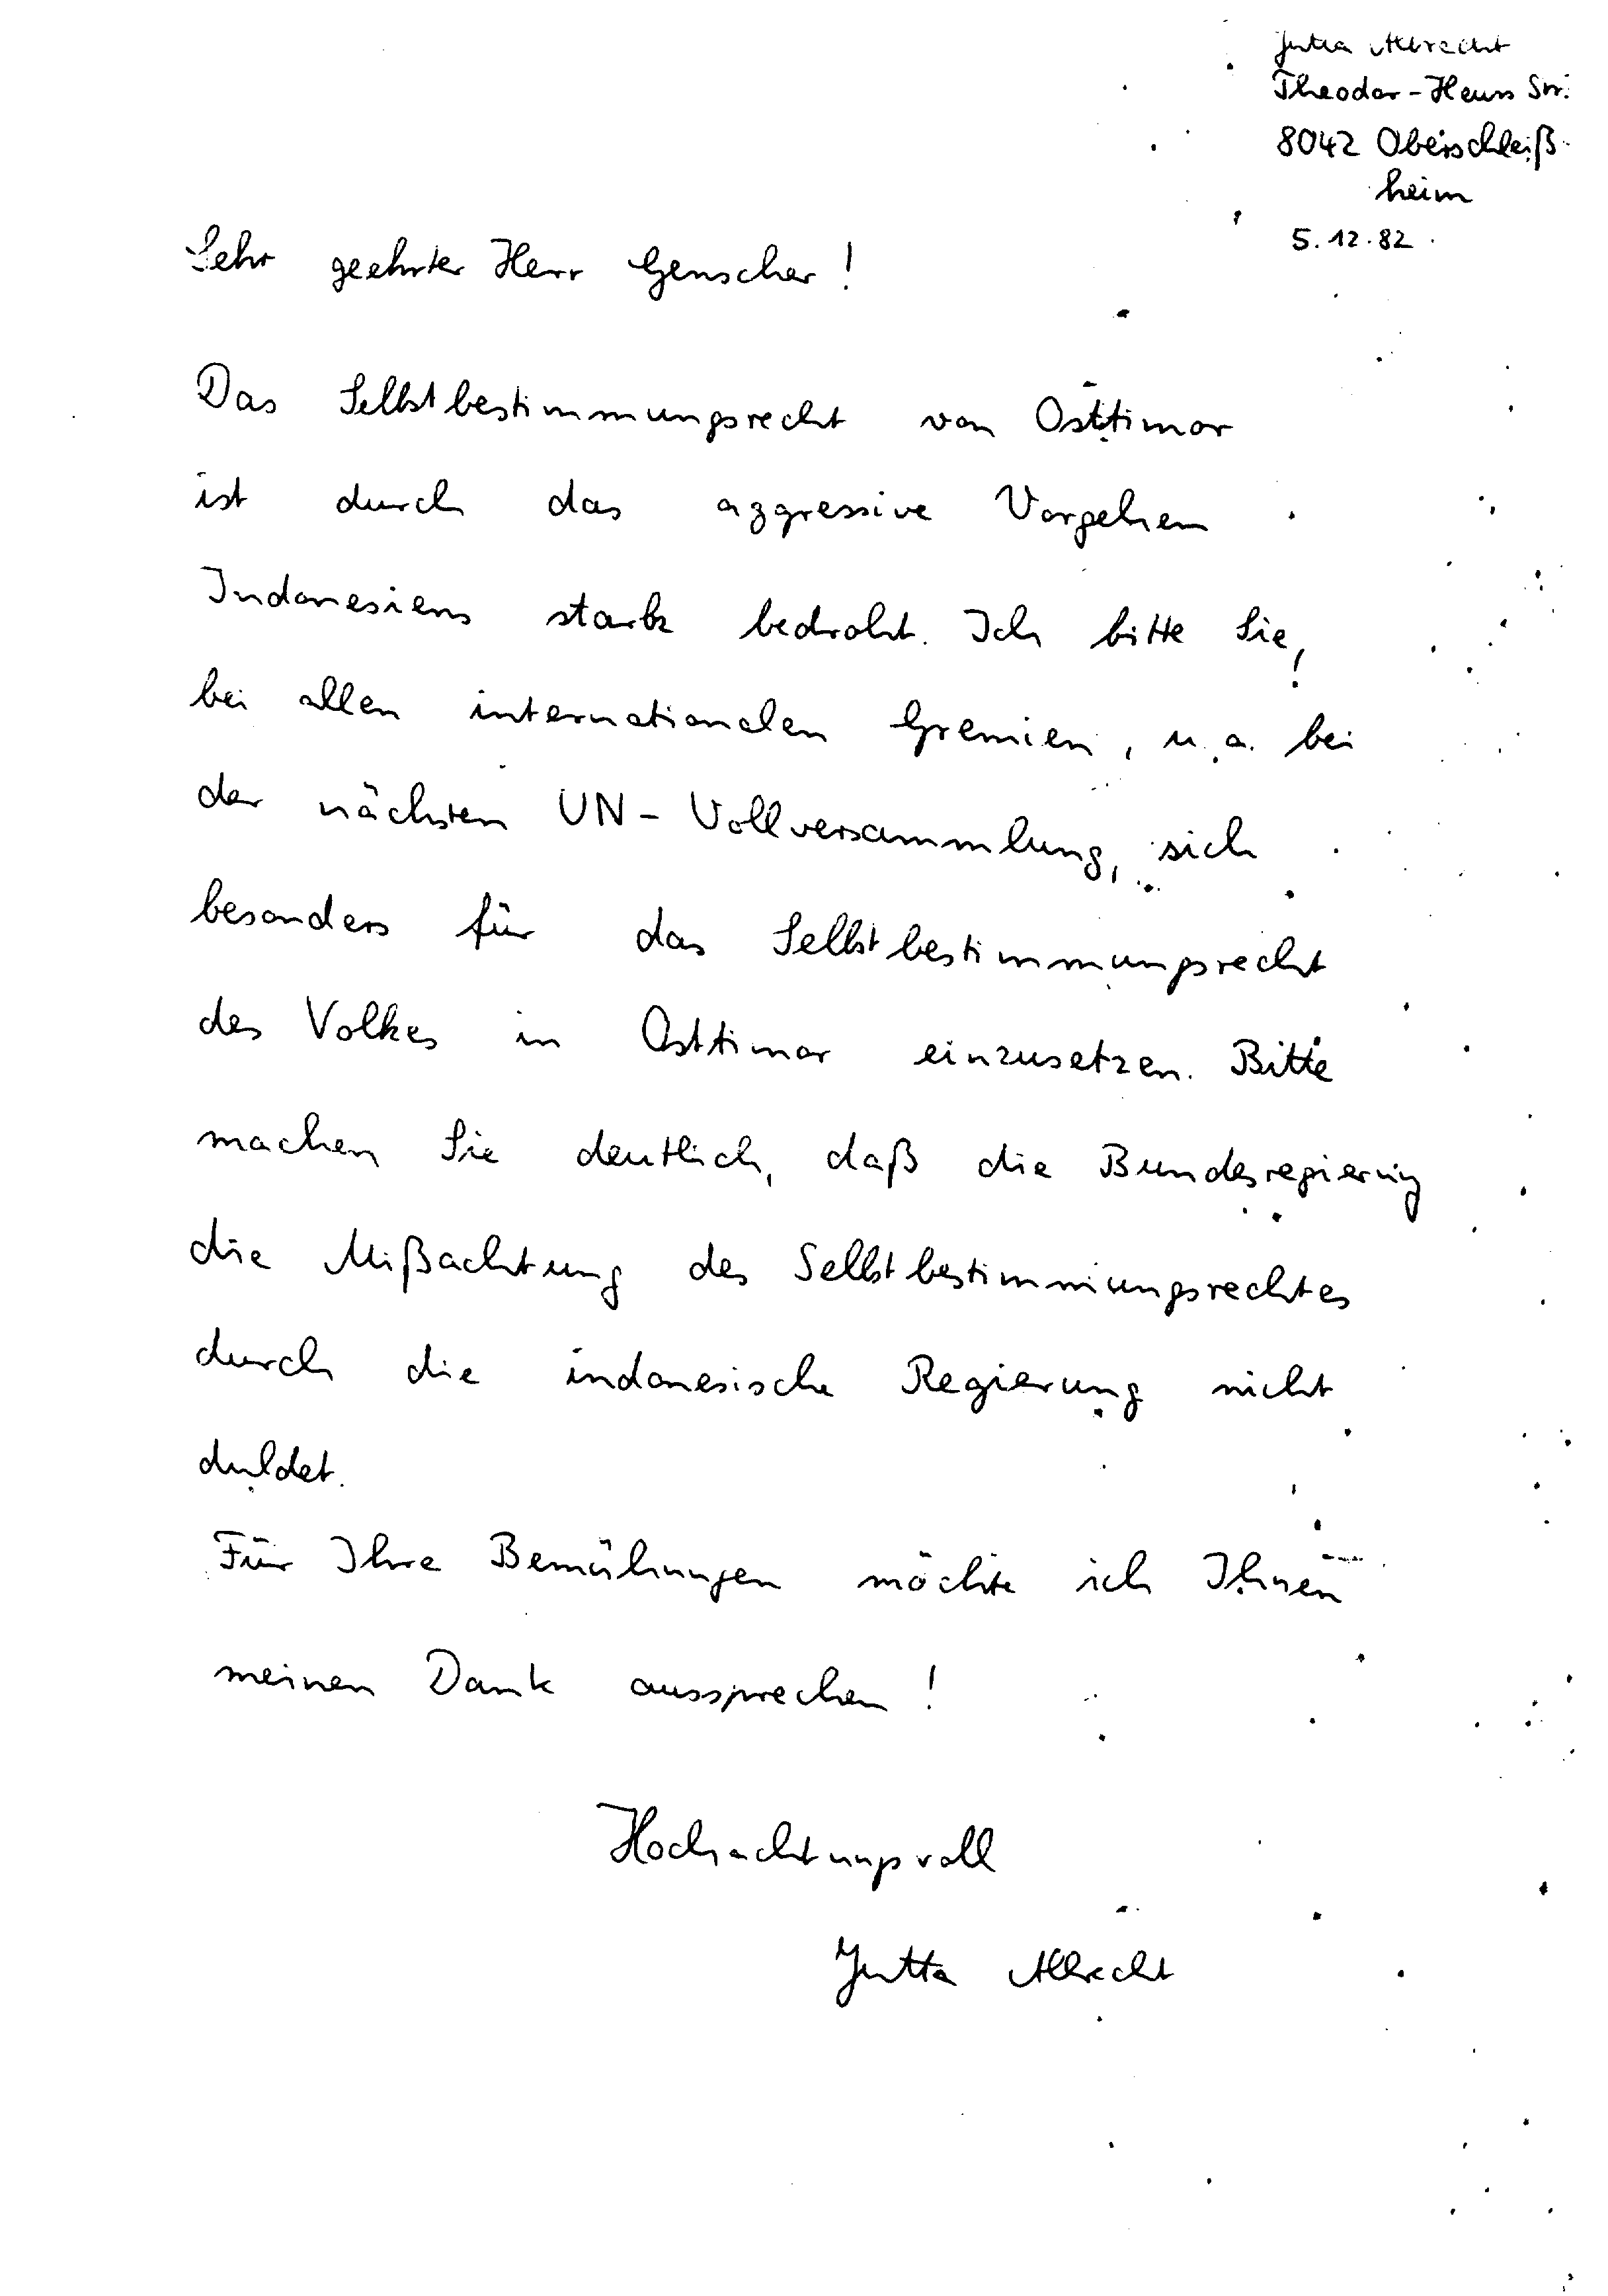 Jutta Albrecht
Theodor-Heuss Str.
8042 Oberschleiß-
heim
5.12.82
Sehr geehrter Herr Genscher!
Das Selbstbestimmungsrecht von Osttimor
ist durch das aggressive Vorgehen
Indonesiens stark bedroht. Ich bitte Sie,
bei allen internationalen Gremien, u.a. bei
der nächsten UN-Vollversammlung, sich
besonders für das Selbstbestimmungsrecht
des Volkes in Osttimor einzusetzen. Bitte
machen Sie deutlich, daß die Bundesregierung
die Mißachtung des Selbstbestimmungsrechtes
durch die indonesische Regierung nicht
duldet.
Für Ihre Bemühungen möchte ich Ihnen
meinen Dank aussprechen!
Hochachtungsvoll
Jutta Albrecht